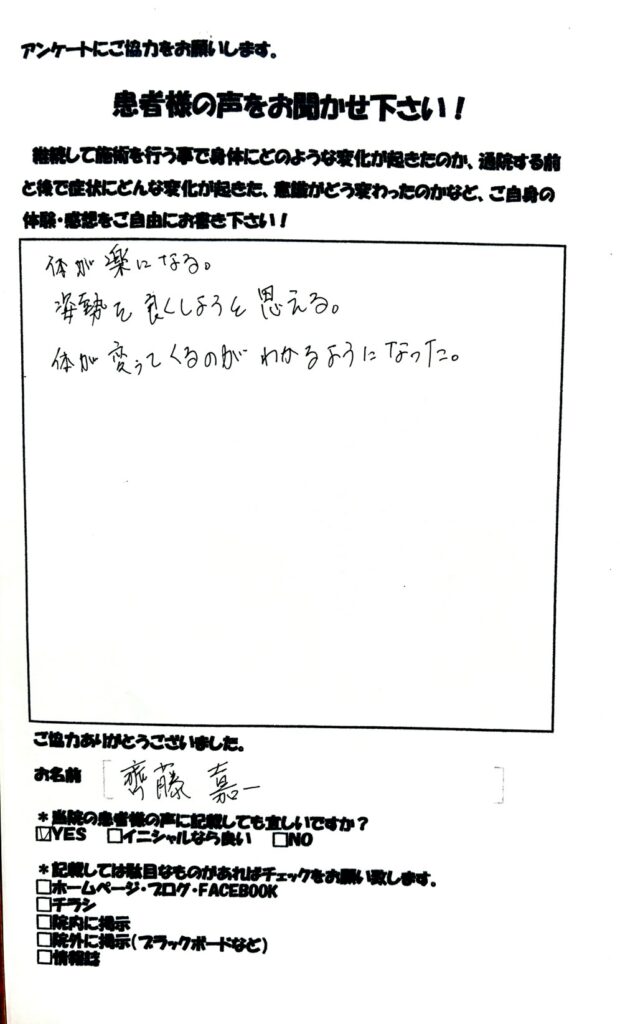 アンケートにご協力をお願いします。
患者様の声をお聞かせ下さい!
継続して施術を行う事で身体にどのような変化が起きたのか、通院する前
と後で症状にどんな変化が起きた、意識がどう変わったのかなど、ご自身の
体験・感想をご自由にお書き下さい!
体が楽になる。
姿勢を良くしようと思える。
体が変ってくるのがわかるようになった。
ご協力ありがとうございました。
お名前 齊藤 嘉一
*当院の患者様の声に記載しても宜しいですか?
☑YES □イニシャルなら良い □NO
*記載しては駄目なものがあればチェックをお願い致します。
□ホームページ・ブログ・FACEBOOK
□チラシ
□院内に掲示
□院外に掲示(ブラックボードなど)
□情報誌